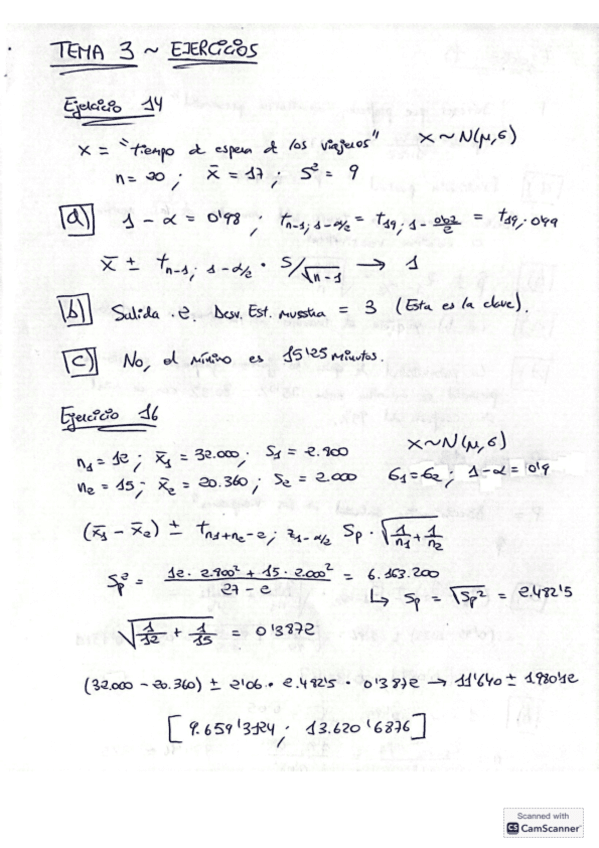 TEMA 3 ~ EJERCICIOS
Ejercicio 14
X = "Tiempo de espera de los viajeros" X ~ N(μ,σ)
n = 20 ; x̄ = 17 ; S² = 9
a) 1 - α = 0'98 ; t n-1; 1-α/2 = t19; 1 - 0'02/2 = t19; 0'99
x̄ ± t n-1; 1-α/2 · S/√n-1 → 1
b) Salida 2. Desv. Est. muestra = 3 (Esta es la clave).
c) No, el mínimo es 15'25 minutos.
Ejercicio 16
n1 = 12 ; x̄1 = 32.000 ; S1 = 2.900 X ~ N(μ,σ)
n2 = 15 ; x̄2 = 20.360 ; S2 = 2.000 σ1 = σ2 ; 1 - α = 0'9
(x̄1 - x̄2) ± t n1+n2-2; 1-α/2 Sp · √1/n1 + 1/n2
Sp² = 12 · 2.900² + 15 · 2.000² / 27 - 2 = 6.163.200
↳ Sp = √Sp² = 2.482'5
√1/12 + 1/15 = 0'3872
(32.000 - 20.360) ± 2'06 · 2.482'5 · 0'3872 → 11'640 ± 1980'12
[9.659'3124 ; 13.620'6876]
Scanned with
CS CamScanner